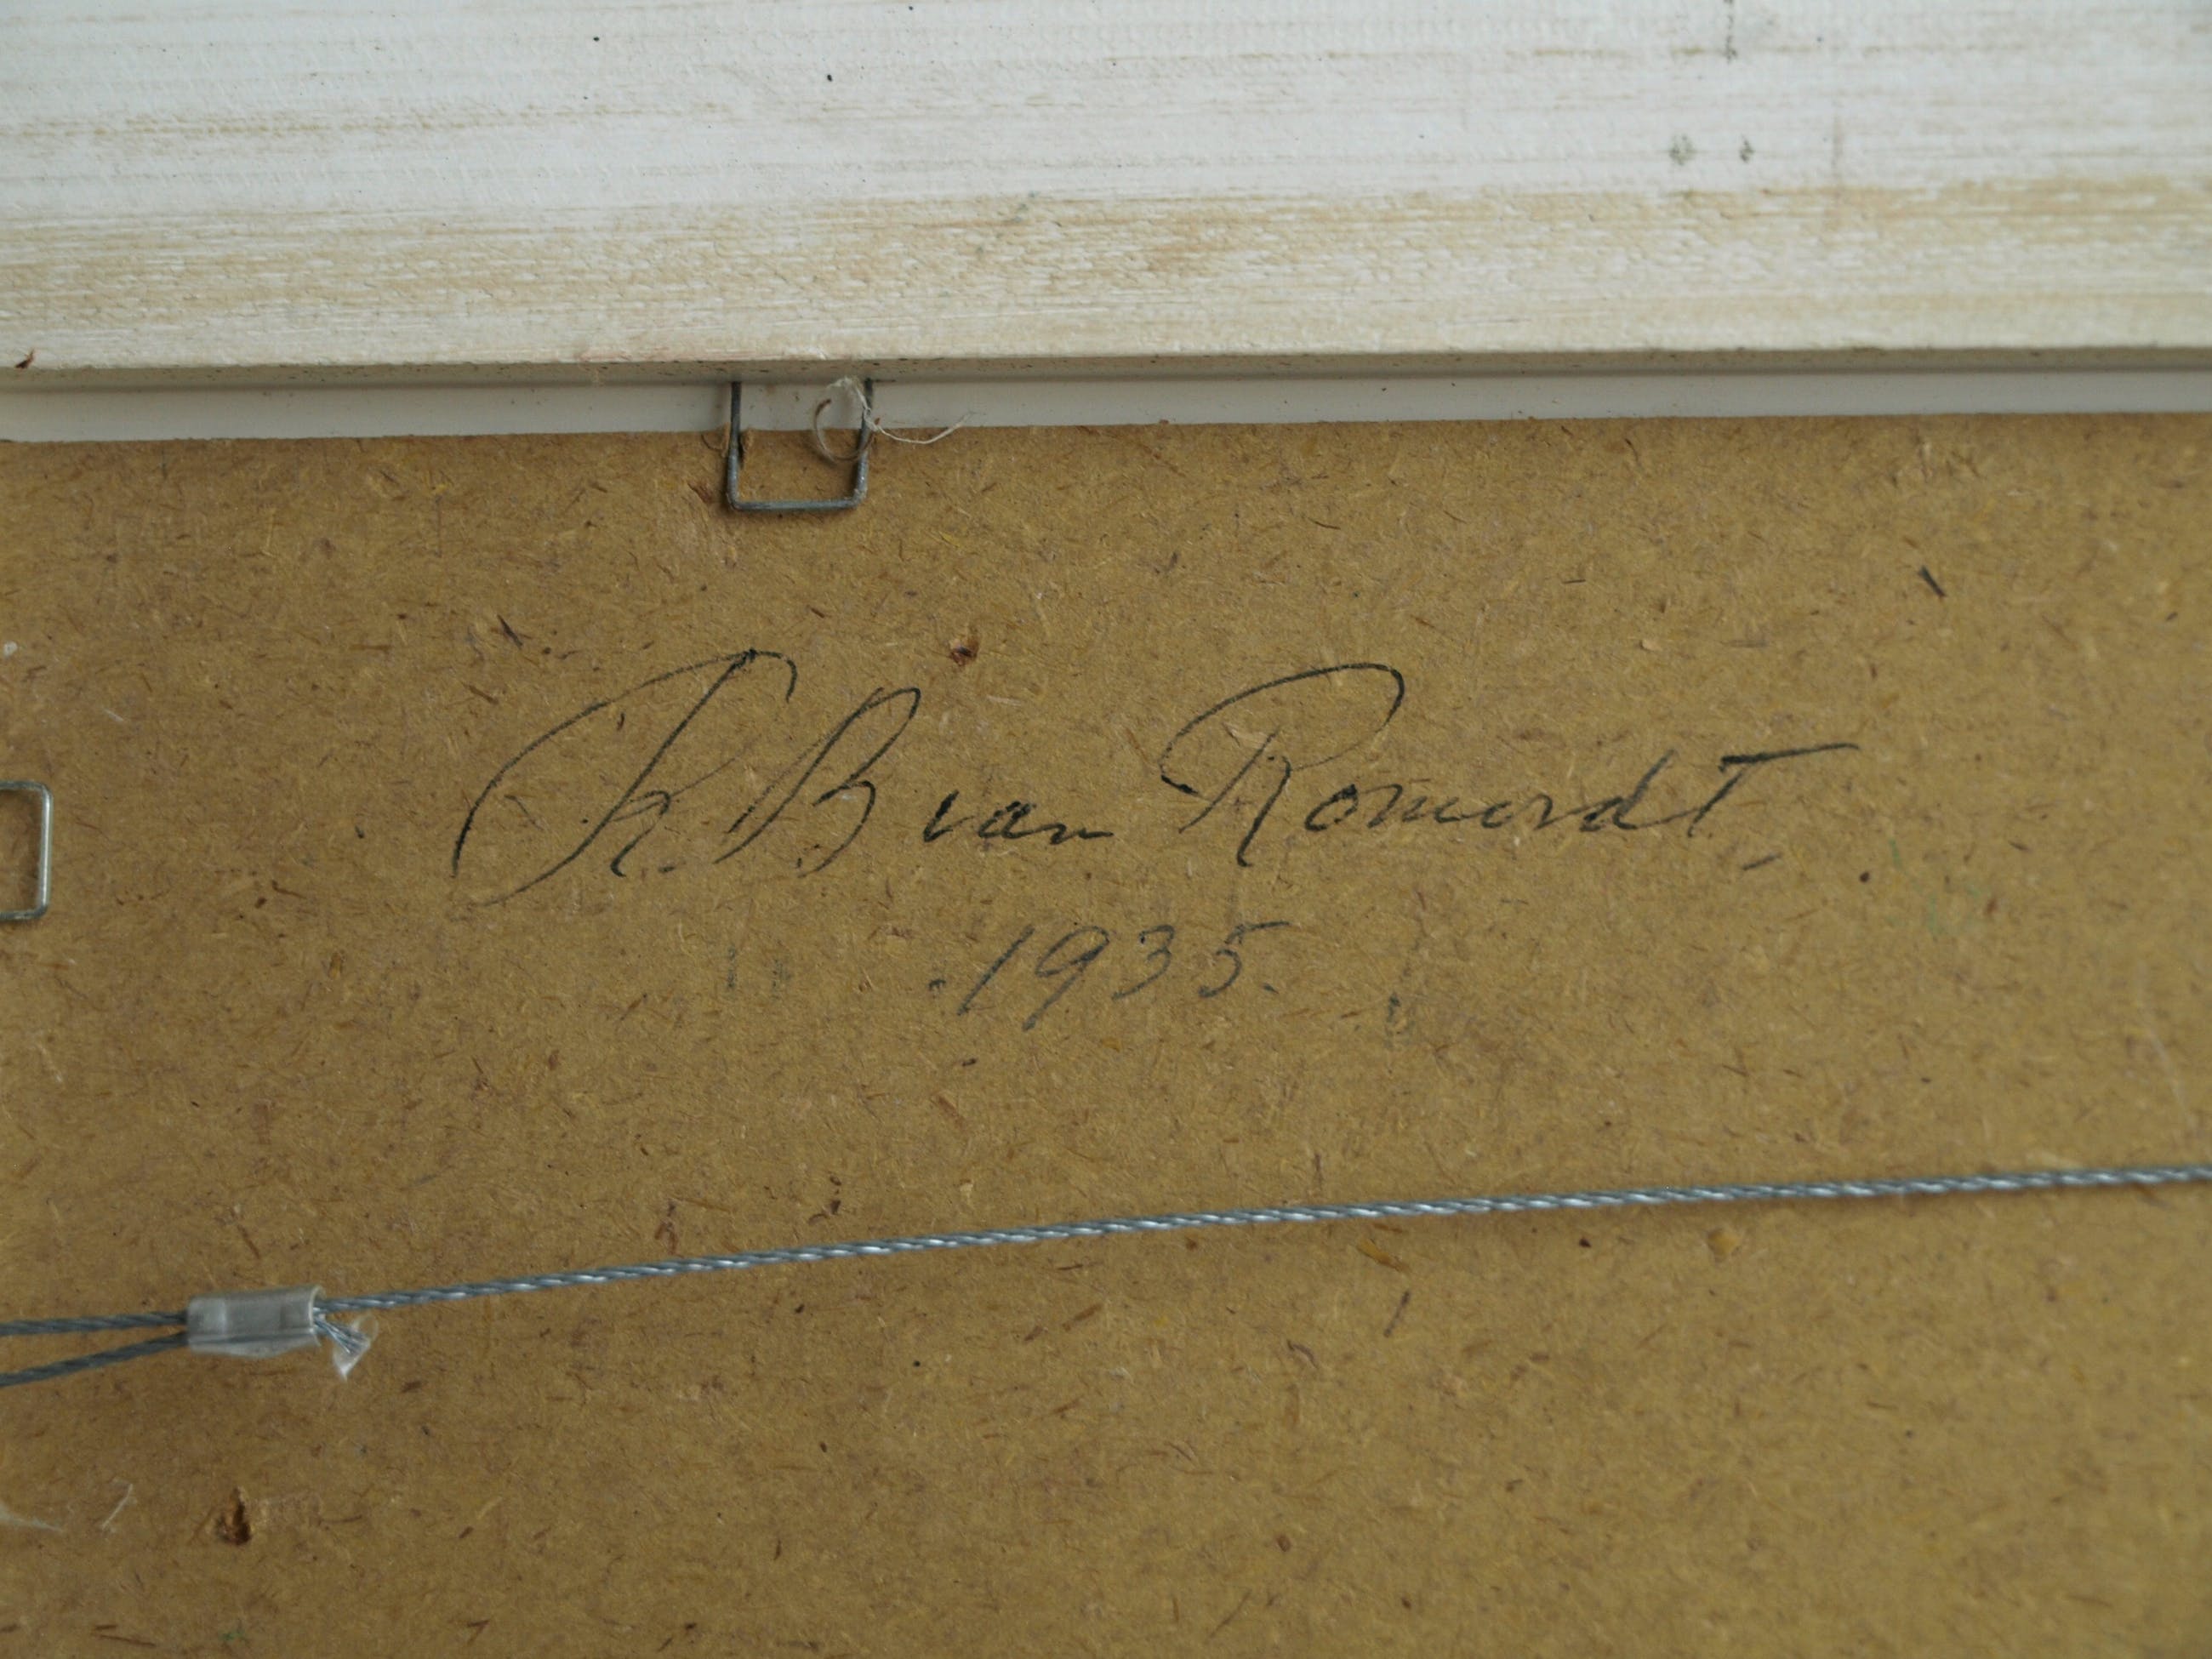 K. B van Romerdt.
1935.